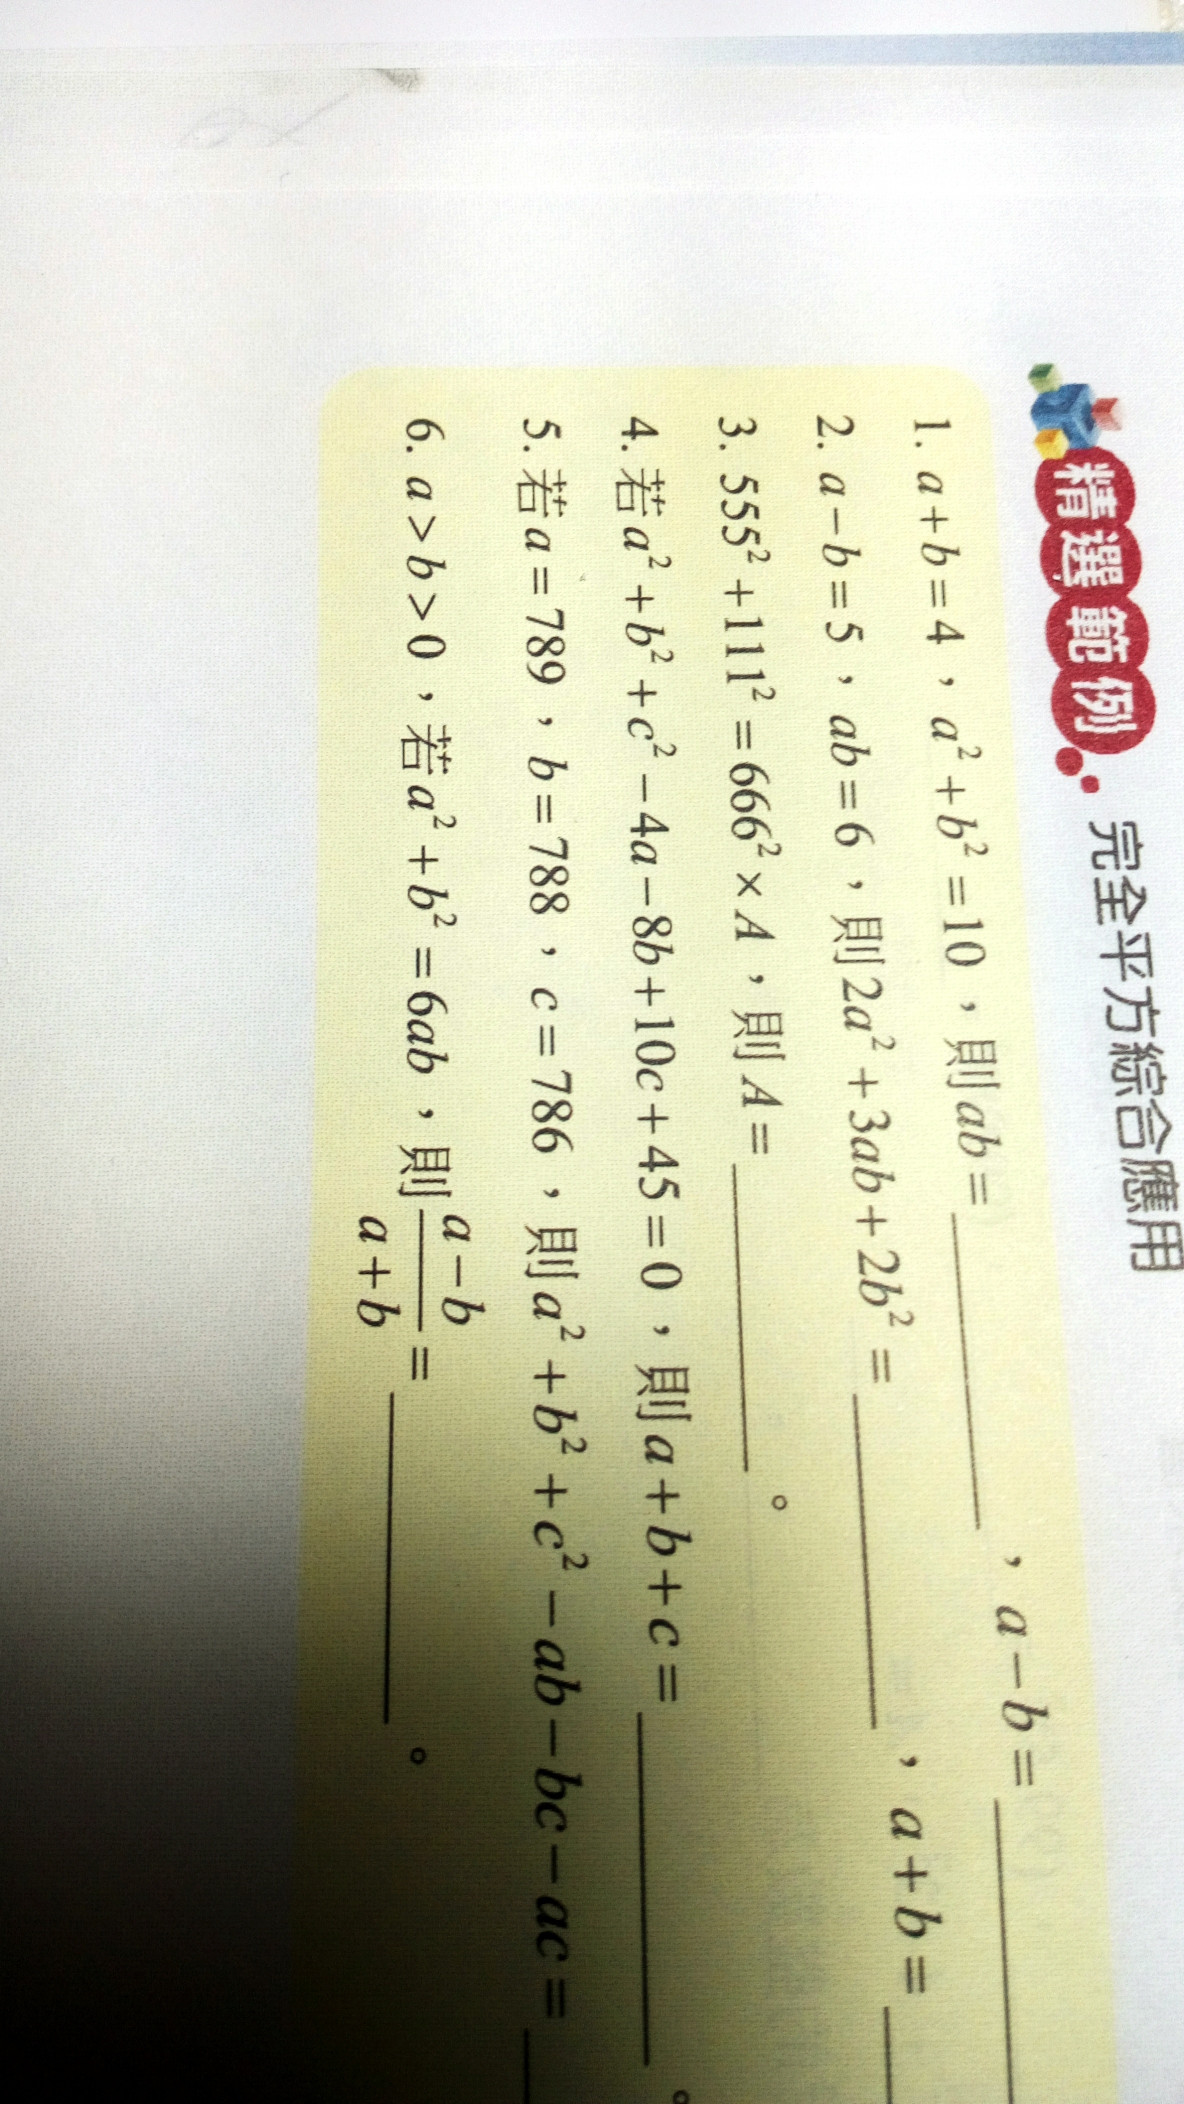 精選範例 完全平方綜合應用
1. a+b=4，a²+b²=10，則ab=________，a−b=________
2. a−b=5，ab=6，則2a²+3ab+2b²=________，a+b=________
3. 555²+111²=666²×A，則A=________。
4. 若a²+b²+c²−4a−8b+10c+45=0，則a+b+c=________。
5. 若a=789，b=788，c=786，則a²+b²+c²−ab−bc−ac=________
6. a>b>0，若a²+b²=6ab，則(a−b)/(a+b)=________。